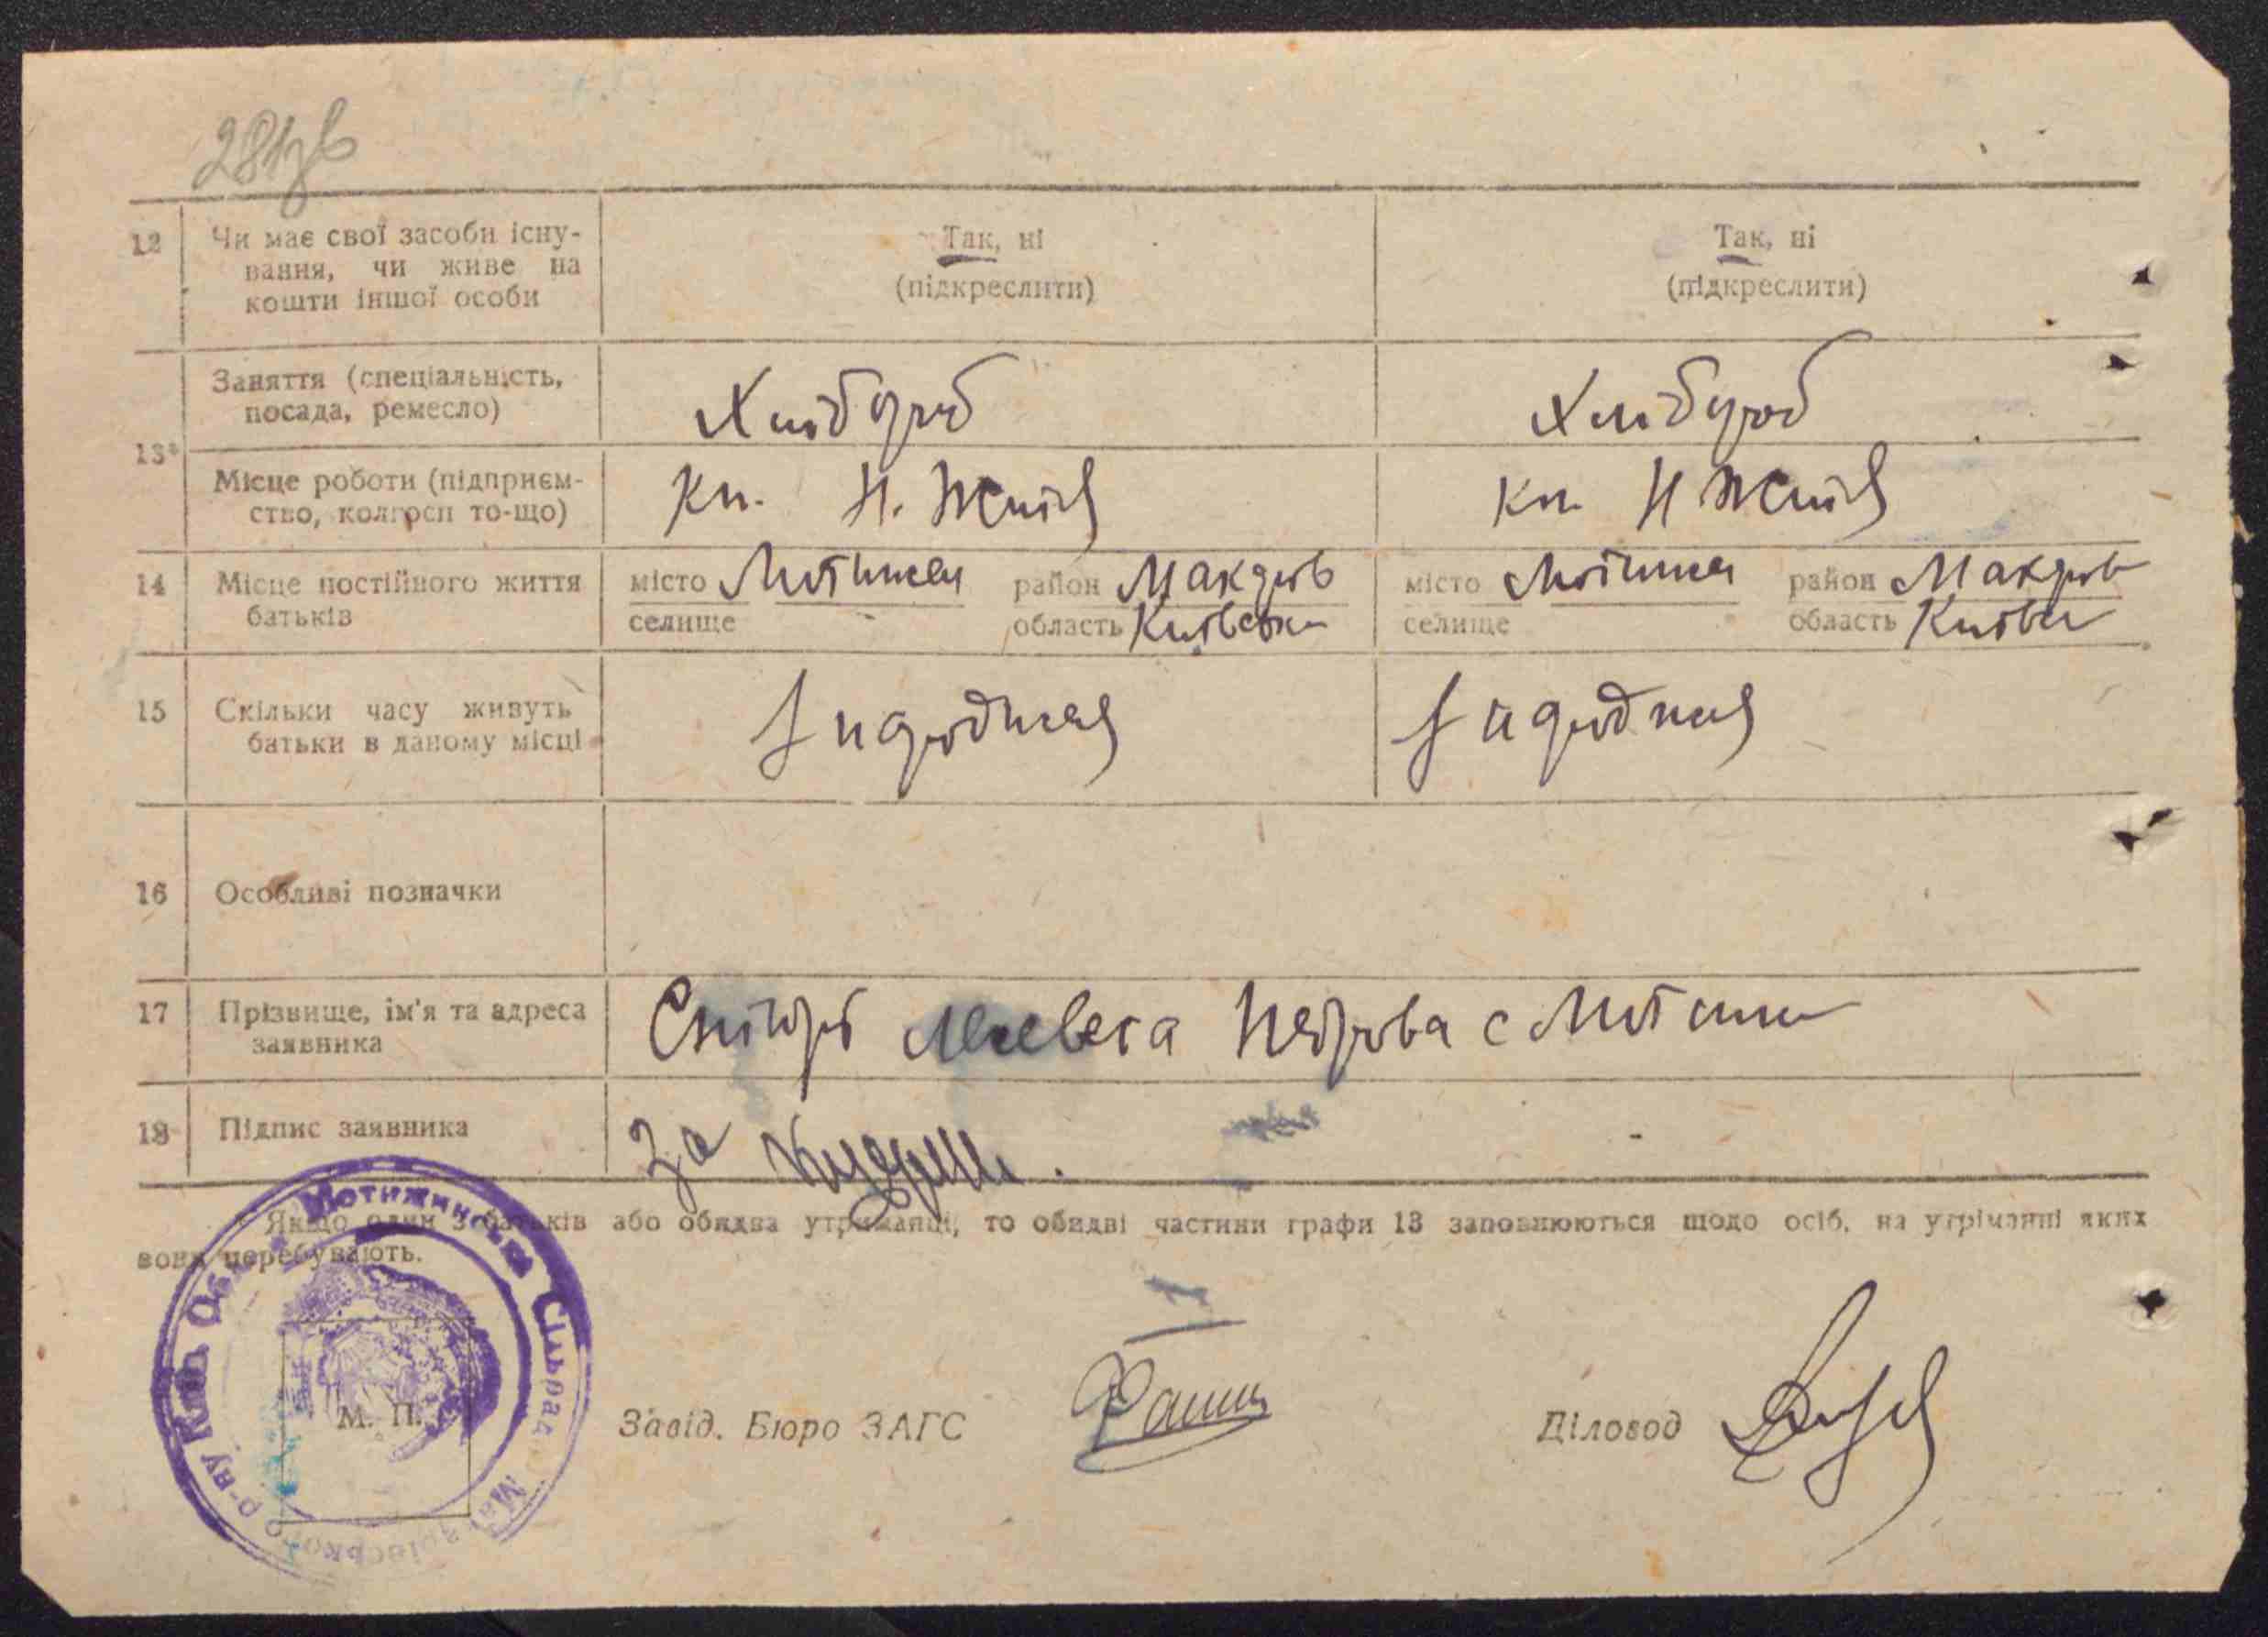 281зв
12 Чи має свої засоби існу-
вання, чи живе на
кошти іншої особи
Так, ні
(підкреслити)
Так, ні
(підкреслити)
13*
Заняття (спеціальність,
посада, ремесло)
Хлібороб
Хлібороб
Місце роботи (підприєм-
ство, колгосп то-що)
Кп. Н. Життя
Кп. Н Життя
14 Місце постійного життя
батьків
місто Мотижин район Макарів
селище область Київська
місто Мотижин район Макарів
селище область Київсь
15 Скільки часу живуть
батьки в даному місці
з народження
з народження
16 Особливі позначки
17 Прізвище, ім'я та адреса
заявника
Петрова с Мотижин
18 Підпис заявника
За
* Якщо один з батьків або обидва утриманці, то обидві частини графи 13 заповнюються щодо осіб, на утриманні яких
вони перебувають.
Мотижинська Сільрада Макарівського р-ну Київ. Обл.
М. П.
Завід. Бюро ЗАГС
Діловод